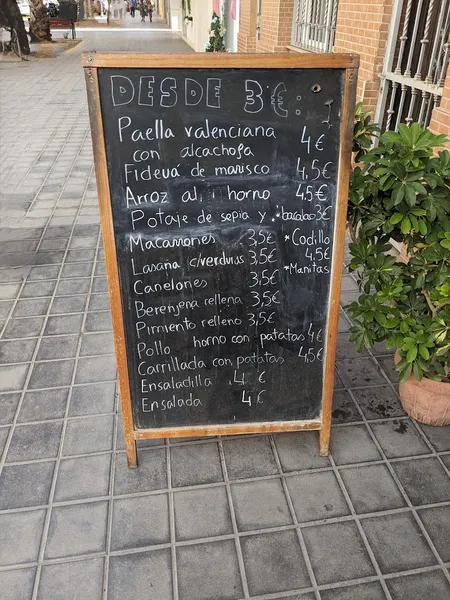 DESDE 3€:
Paella valenciana
con alcachofa 4€
Fideuá de marisco 4,5€
Arroz al horno 4.5€
Potaje de sepia y bacalao 3€
Macarrones 3,5€ *Codillo
Lasaña c/verduras 3,5€ 4,5€
Canelones 3,5€ *Manitas
Berenjena rellena 3,5€
Pimiento relleno 3,5€
Pollo horno con patatas 4€
Carrillada con patatas 4,5€
Ensaladilla 4€
Ensalada 4€